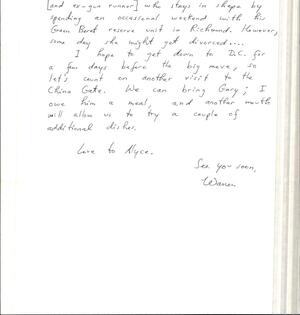 [and ex-gun runner] who stays in shape by
spending an occasional weekend with his
Green Beret reserve unit in Richmond. However,
some day she might get divorced....
I hope to get down to D.C. for
a few days before the big move, so
let's count on another visit to the
China Gate. We can bring Gary; I
owe him a meal, and another mouth
will allow us to try a couple of
additional dishes.
Love to Alyce.
See you soon,
Warren